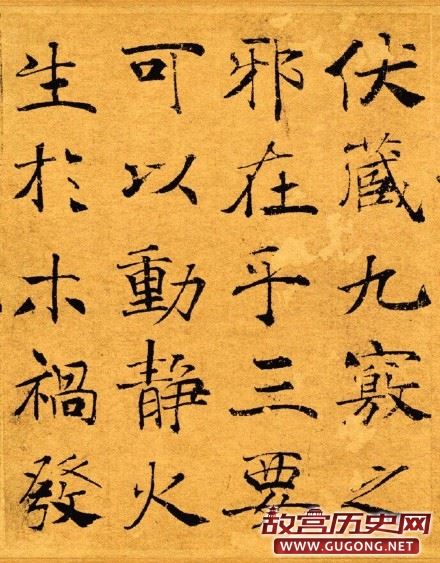 伏藏九竅之
邪在乎三要
可以動静火
生於木禍發
故宫历史网
WWW.GUGONG.NET